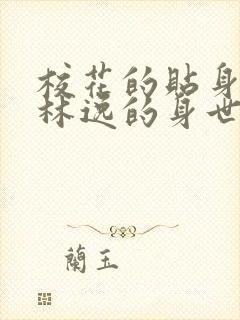 校花的貼身
林逸的身世
蘭玉